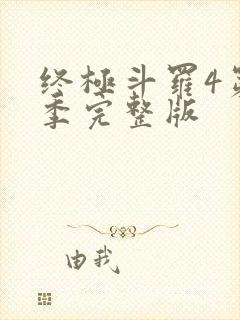 终極斗羅4第
季完整版
由我